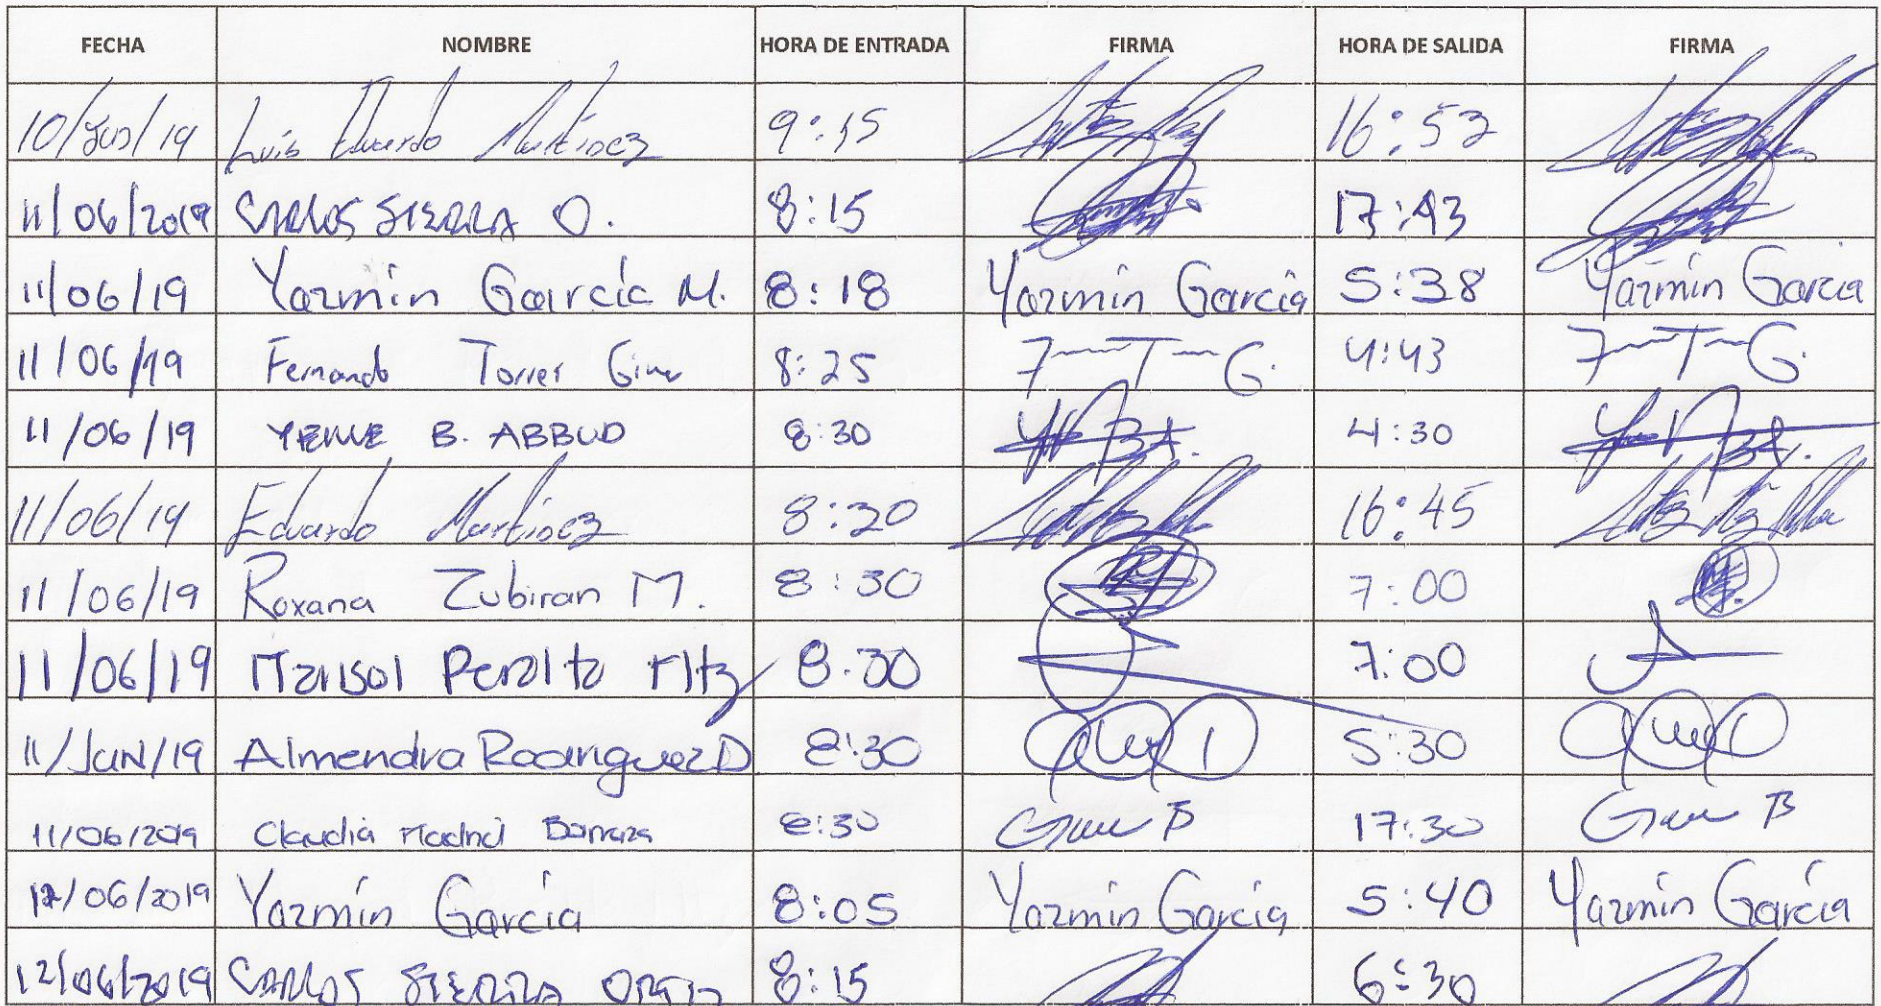 FECHA NOMBRE HORA DE ENTRADA FIRMA HORA DE SALIDA FIRMA
10/Jun/19 Luis Eduardo Martínez 9:15 16:53
11/06/2019 CARLOS SIERRA O. 8:15 17:43
11/06/19 Yazmín García M. 8:18 Yazmín García 5:38 Yazmín García
11/06/19 Fernando Torres 8:25 F T G. 4:43 F T G.
11/06/19 B. ABBUD 8:30 4:30
11/06/19 Eduardo Martínez 8:20 16:45
11/06/19 Roxana Zubiran M. 8:30 7:00
11/06/19 Marisol Peralta Mtz 8:30 7:00
11/Jun/19 Almendra Rodriguez D 8:30 5:30
11/06/2019 Claudia Madrid Barraza 8:30 17:30
12/06/2019 Yazmín García 8:05 Yazmín García 5:40 Yazmín García
12/06/2019 CARLOS SIERRA ORTIZ 8:15 6:30